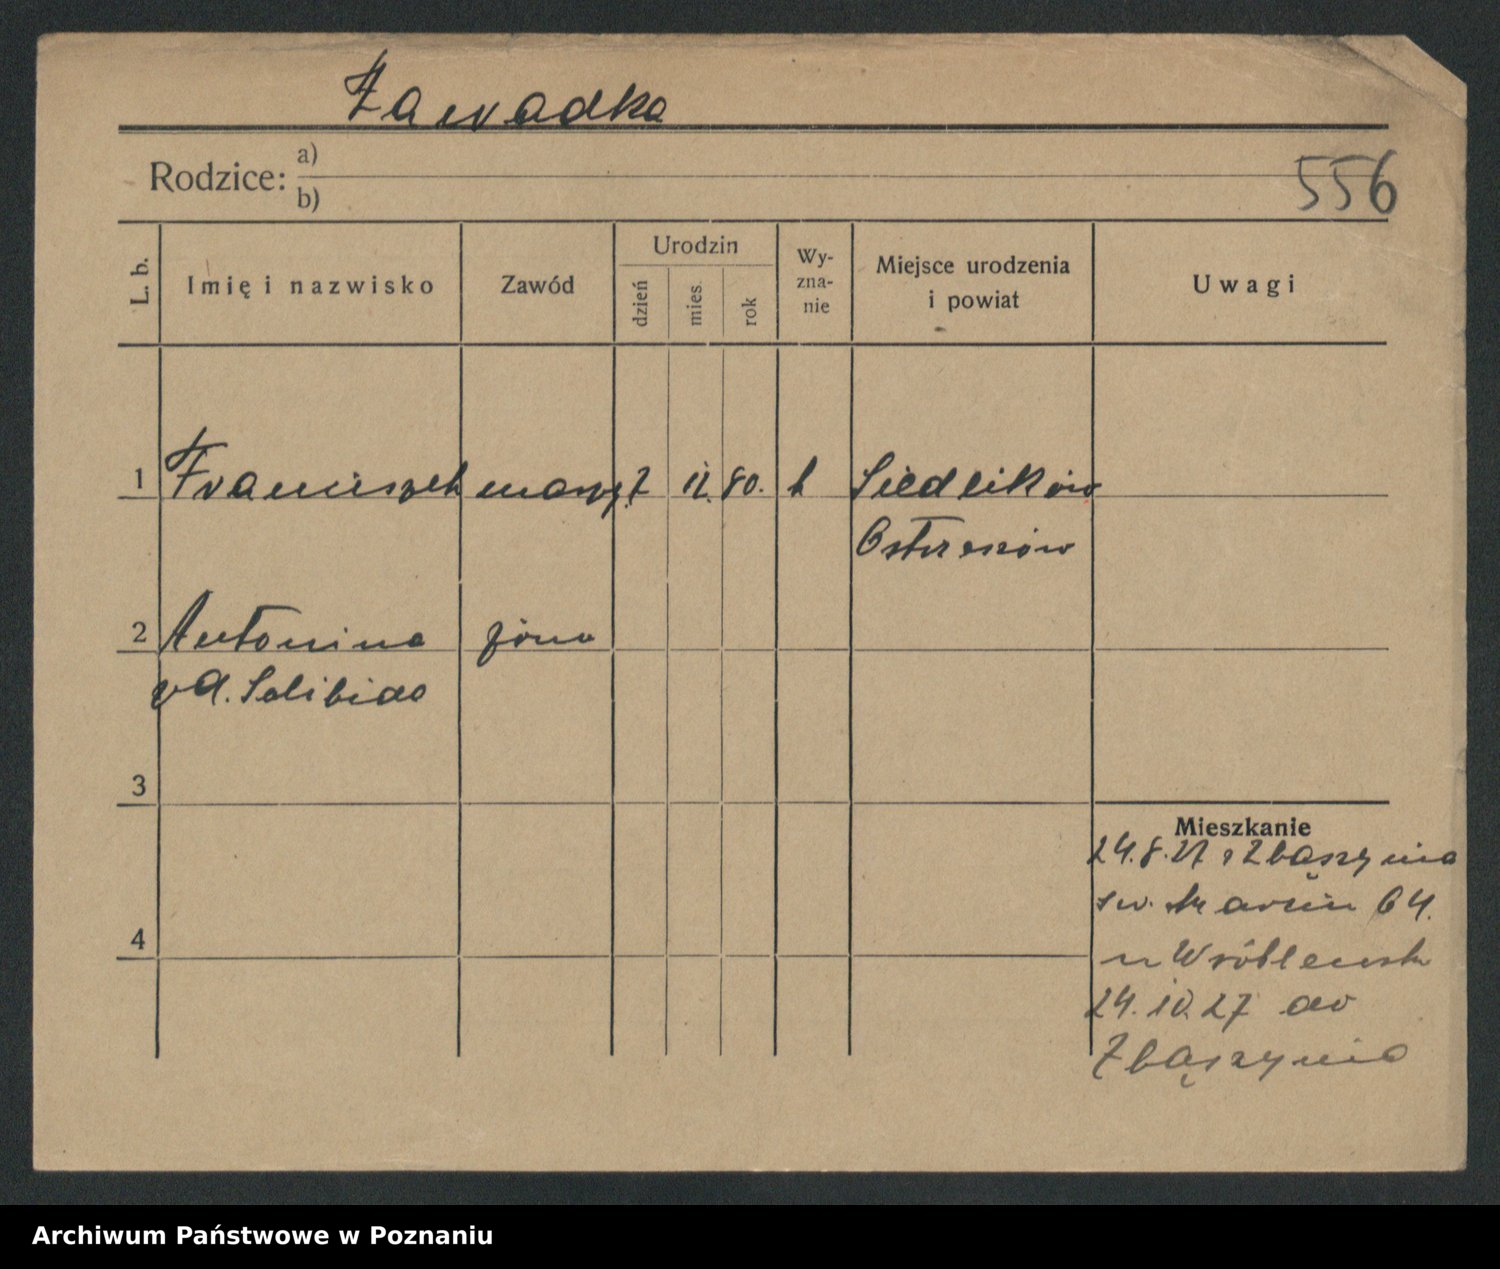 Zawadka
Rodzice: a)
b)
556
L. b.
Imię i nazwisko
Zawód
Urodzin
dzień
mies.
rok
Wy-
zna-
nie
Miejsce urodzenia
i powiat
Uwagi
1 Franciszek masz. 7 11. 80. k Siedlików
Ostrzeszów
2 Antonina żona
vd.
3
Mieszkanie
24.8.27 z Zbąszynia
św. Marcin 64.
4
u Wróblewsk
24.10.27 do
Zbąszynia
Archiwum Państwowe w Poznaniu